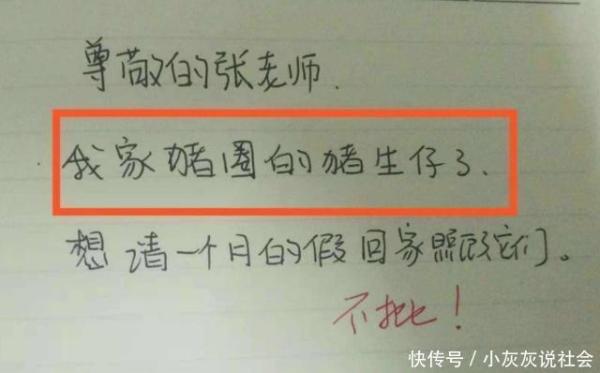 尊敬的张老师.
我家猪圈的猪生仔了.
想请一个月的假回家照顾它们。
不批！
快传号／小灰灰说社会